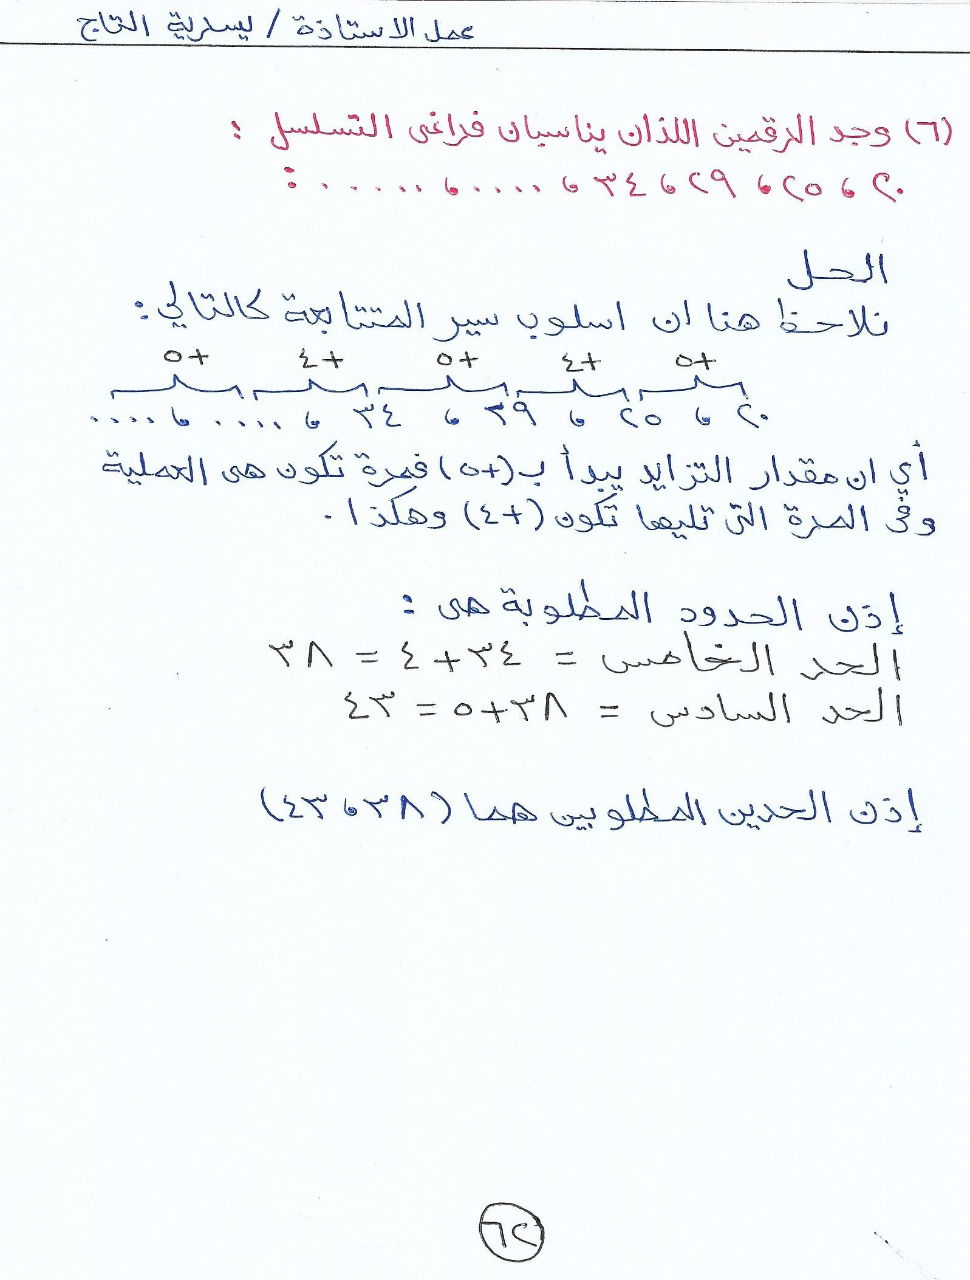 عمل الاستاذة / يسرية التاج
(٦) وجد الرقمين اللذان يناسبان فراغى التسلسل :
٢٠ ، ٢٥ ، ٢٩ ، ٣٤ ، ..... ، ...... :
الحل
نلاحظ هنا ان اسلوب سير المتتابعة كالتالي :
+٥ +٤ +٥ +٤ +٥
٢٠ ، ٢٥ ، ٢٩ ، ٣٤ ، ..... ، .....
أي ان مقدار التزايد يبدأ ب (+٥) فمرة تكون هى العملية
وفى المرة التى تليها تكون (+٤) وهكذا .
إذن الحدود المطلوبة هى :
الحد الخامس = ٣٤+٤ = ٣٨
الحد السادس = ٣٨+٥ = ٤٣
إذن الحدين المطلوبين هما (٣٨ ، ٤٣)
٦٢